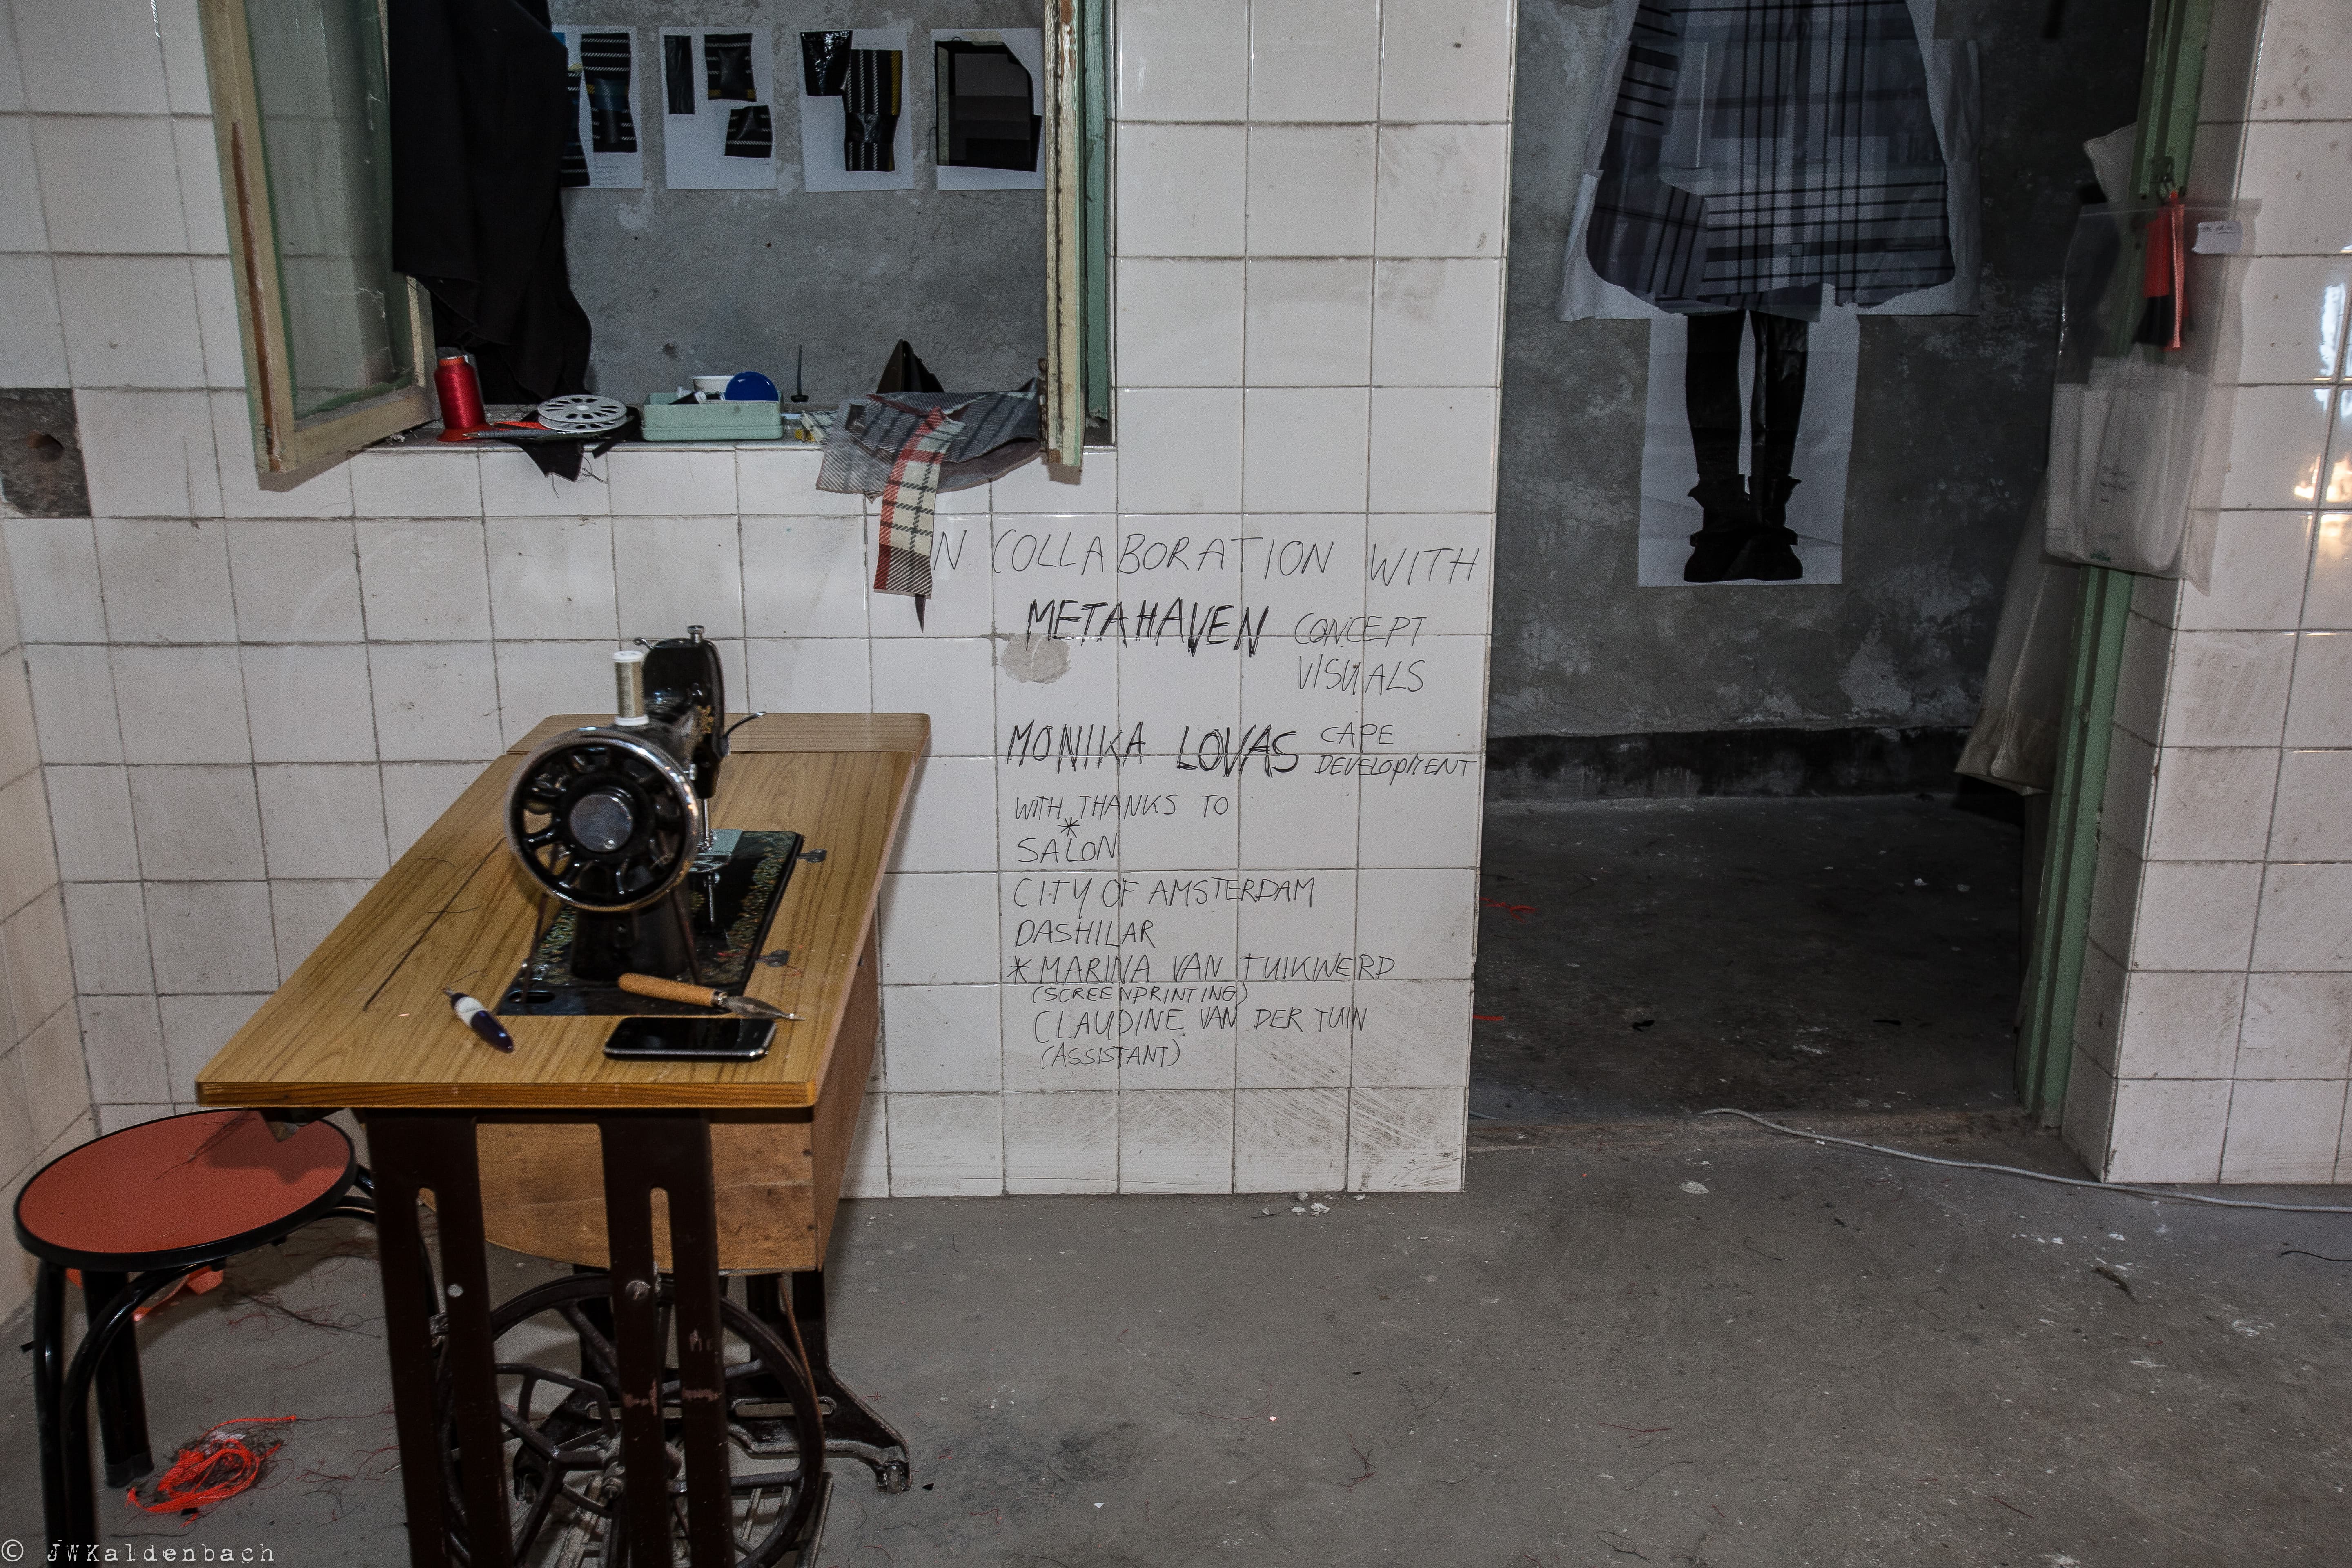 N COLLABORATION WITH
METAHAVEN CONCEPT
VISUALS
MONIKA LOVAS CAPE
DEVELOPMENT
WITH THANKS TO
*
SALON
CITY OF AMSTERDAM
DASHILAR
* MARINA VAN TUIKWERD
(SCREENPRINTING)
CLAUDINE VAN DER TUIN
(ASSISTANT)
© JWKaldenbach